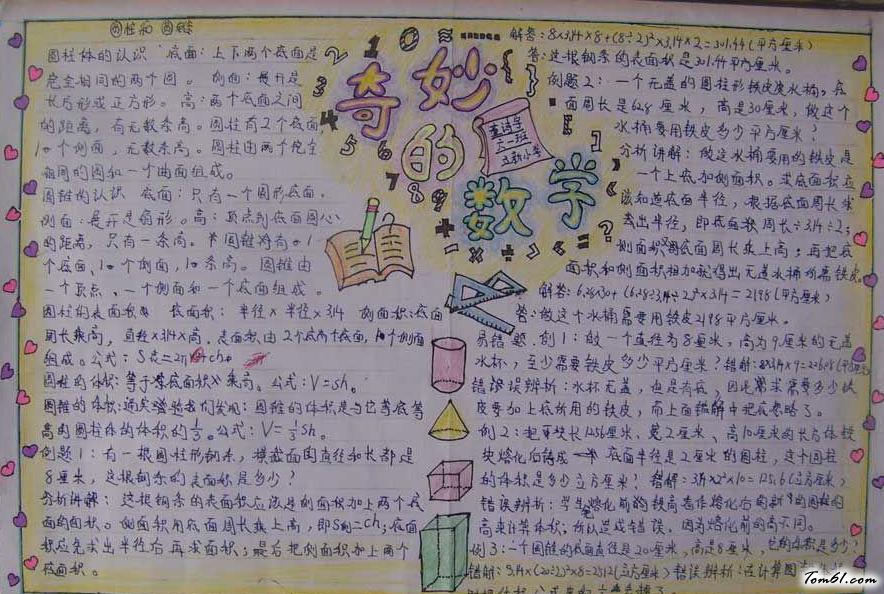 圆柱和圆锥
圆柱体的认识 底面：上下两个底面是
完全相同的两个圆。侧面：展开是
长方形或正方形。高：两个底面之间
的距离，有无数条高。圆柱有2个底面
1个侧面，无数条高。圆柱由两个完全
相同的圆和一个曲面组成。
圆锥的认识 底面：只有一个圆形底面。
侧面：展开是扇形。高：顶点到底面圆心
的距离，只有一条高。圆锥有1
个底面、1个侧面，1条高。圆锥由
一个顶点、一个侧面和一个底面组成。
圆柱的表面积 底面积：半径×半径×3.14 侧面积：底面
周长乘高，直径×3.14×高。表面积由2个底面，1个侧面
组成。公式：
圆柱的体积：等于底面积×乘高。公式：V=sh。
圆锥的体积：通过实验我们发现：圆锥的体积是与它等底等
高的圆柱体的体积的1/3。公式：V=1/3sh。
例题1：有一根圆柱形钢条，横截面的直径和长都是
8厘米，这根钢条的表面积是多少？
分析讲解：这根钢条的表面积应该是侧面积加上两个底
面的面积。侧面积用底面周长乘上高，即S侧=ch；底面
积应先求出半径后再求面积；最后把侧面积加上两个
底面积。
奇妙
的
数学
六一班
解答：8×3.14×8+(8÷2)²×3.14×2=301.44(平方厘米)
答：这根钢条的表面积是301.44平方厘米。
例题2：一个无盖的圆柱形铁皮水桶，底
面周长是6.28厘米，高是30厘米，做这个
水桶要用铁皮多少平方厘米？
分析讲解：做这水桶要用的铁皮是
一个上底加侧面积。求底面积应
该知道底面半径，根据底面周长求
出半径，即底面周长÷3.14÷2；
侧面积用底面周长乘上高；再把底
面积和侧面积相加就得出无盖水桶所需铁皮。
解答：6.28×30+(6.28÷3.14÷2)²×3.14=219.8(平方厘米)
答：做这个水桶需要用铁皮219.8平方厘米。
易错题。例1：做一个直径为8厘米，高为9厘米的无盖
水杯，至少需要铁皮多少平方厘米？错解：
错误辨析：水杯无盖，但是有底，因此求需要多少铁
皮要加上底所用的铁皮，而上面错解中把底忽略了。
例2：把长12.56厘米、宽2厘米、高10厘米的长方体铁
块熔化后铸成一个底面半径是2厘米的圆柱，这个圆柱
的体积是多少立方厘米？错解：3.14×2²×10=125.6(立方厘米)
错误辨析：学生把熔化前的铁高看作熔化后的圆柱的
高来计算体积，所以造成错误，因为熔化前后的高不同。
例3：一个圆锥的底面直径是20厘米，高是8厘米，它的体积是多少？
错解：3.14×(20÷2)²×8=2512(立方厘米) 错误辨析：在计算圆锥
Tom61.com